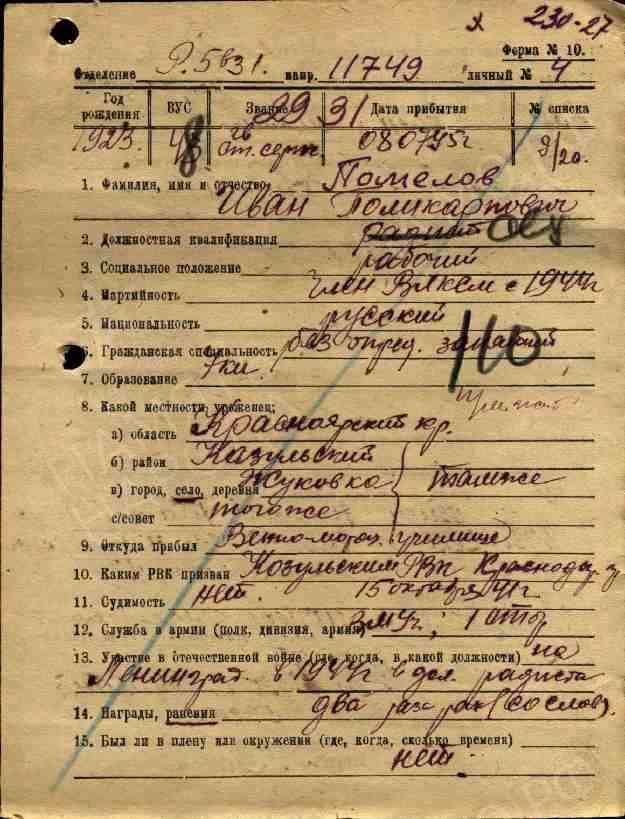 х 230-27
Форма № 10.
Отделение Р. 5вз1. напр. 11749 личный № 4
Год рождения ВУС Звание Дата прибытия № списка
29 31
1923. гв. ст. серж. 080745г 9/20.
1. Фамилия, имя и отчество Помелов
Иван Поликарпович
2. Должностная квалификация радист
3. Социальное положение рабочий
4. Партийность член ВЛКСМ с 1944г
5. Национальность русский
6. Гражданская специальность без опред. занятий
110
7. Образование 7кл.
8. Какой местности уроженец;
а) область Красноярский кр.
б) район Казульский
в) город, село, деревня Жуковка тамже
с/совет тогоже
9. Откуда прибыл училище
10. Каким РВК призван Козульским РВК
15 октября 41г
11. Судимость нет.
12. Служба в армии (полк, дивизия, армия)
13. Участие в отечественной войне (где, когда, в какой должности) на
Ленинград. в 1944г в дол. радиста
14. Награды, ранения два раз ран (со слов).
15. Был ли в плену или окружении (где, когда, сколько времени)
нет.